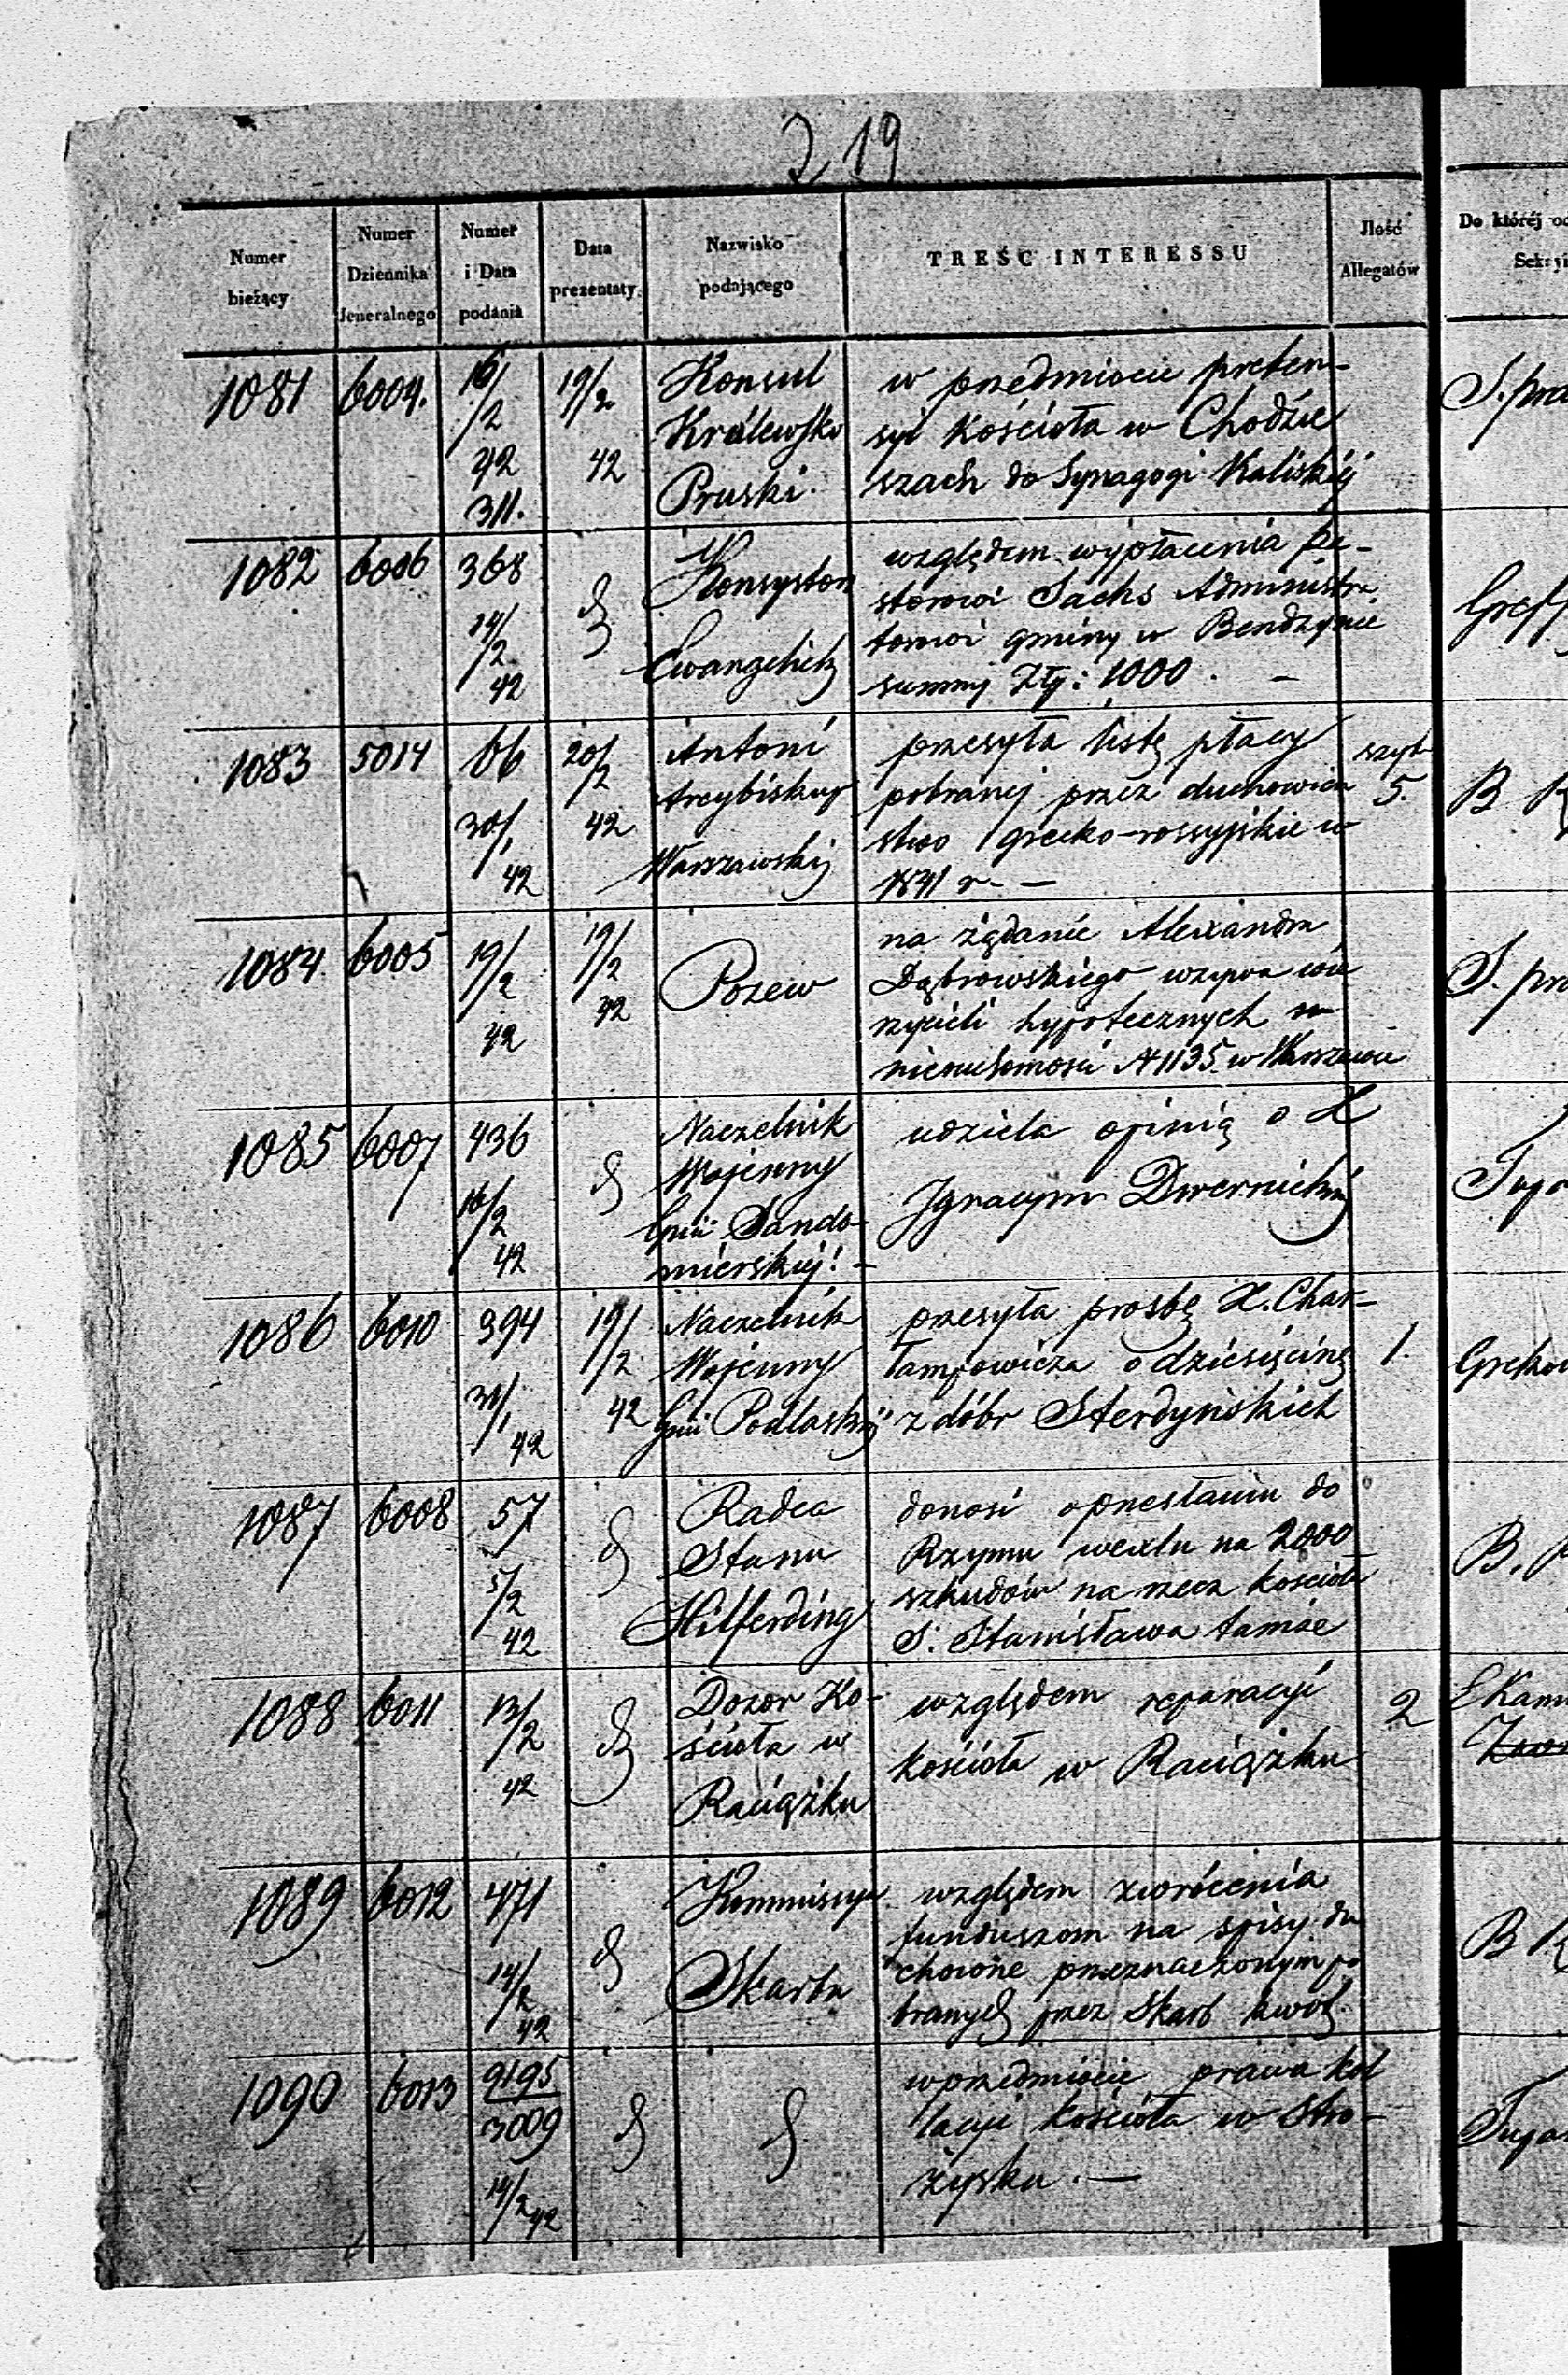 219
Numer bieżący
Numer Dziennika Jeneralnego
Numer i Data podania
Data prezentaty
Nazwisko podającego
TREŚĆ INTERESSU
Ilość Allegatów
Do któréj
1081 6004. 16/2 42 311. 19/2 42
Konsul
Królewsko
Pruski.
w przedmiocie preten-
syi Kościoła w Chodzie
szach do Synagogi Kaliskiéj
S. pra
1082 6006 368 14/2 42
Konsystorz
Ewangelick
względem wypłacenia pa-
storowi Sachs Administra
torowi gminy w Bendzynie
summy Złp: 1000. —
1083 5014 66 30/1 42 20/2 42
Antoni
Arcybiskup
Warszawski
przesyła listę płacy
pobranej przez duchowień
stwo grecko-rossyjskie w
1841 r. —
szyt
5.
B
1084 6005 19/2 42 19/2 42
Pozew
na żądanie Alexandra
Dąbrowskiego wzywa wie
rzycieli hypotecznych
nieruchomości N 1135 w Warszawie
S. pra
1085 6007 436 16/2 42
Naczelnik
Wojenny
Gnii Sando-
mierskiéj. —
udziela opinią o X
Ignacym Dwernickim
1086 6010 394 30/1 42 19/2 42
Naczelnik
Wojenny
Gnii Podlaskiéj
przesyła prosbę X. Char-
łampowicza o dziesięcinę
z dóbr Sterdyńskich
1.
1087 6008 57 5/2 42
Radca
Stanu
Hilferding
donosi o przesłaniu do
Rzymu wexlu na 2000
szkudów na rzecz kościoła
S. Stanisława tamże
B.
1088 6011 13/2 42
Dozor Ko-
ścioła w
Raciążku
względem reparacyi
kościoła w Raciążku
2
1089 6012 471 14/2 42
Kommissya
Skarbu
względem zwrócenia
funduszom na spisy du
chowne przeznaczonym po
branych przez Skarb kwot
B
1090 6013 9195/3009 14/2 42
w przedmiocie prawa kol
lacyi kościoła w Stro-
żysku. —